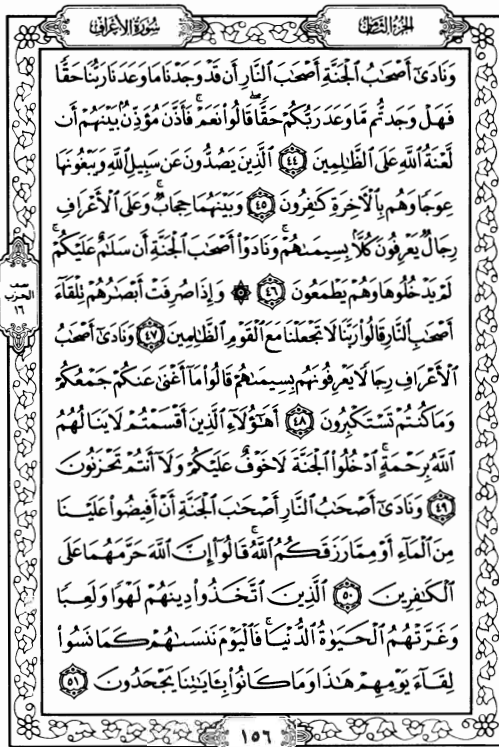 الجُزءُ الثَّامِنُ
سُورَةُ الأَعۡرَافِ
وَنَادَىٰٓ أَصۡحَٰبُ ٱلۡجَنَّةِ أَصۡحَٰبَ ٱلنَّارِ أَن قَدۡ وَجَدۡنَا مَا وَعَدَنَا رَبُّنَا حَقّٗا
فَهَلۡ وَجَدتُّم مَّا وَعَدَ رَبُّكُمۡ حَقّٗاۖ قَالُواْ نَعَمۡۚ فَأَذَّنَ مُؤَذِّنُۢ بَيۡنَهُمۡ أَن
لَّعۡنَةُ ٱللَّهِ عَلَى ٱلظَّٰلِمِينَ ٤٤ ٱلَّذِينَ يَصُدُّونَ عَن سَبِيلِ ٱللَّهِ وَيَبۡغُونَهَا
عِوَجٗا وَهُم بِٱلۡأٓخِرَةِ كَٰفِرُونَ ٤٥ وَبَيۡنَهُمَا حِجَابٞۚ وَعَلَى ٱلۡأَعۡرَافِ
رِجَالٞ يَعۡرِفُونَ كُلَّۢا بِسِيمَىٰهُمۡۚ وَنَادَوۡاْ أَصۡحَٰبَ ٱلۡجَنَّةِ أَن سَلَٰمٌ عَلَيۡكُمۡۚ
لَمۡ يَدۡخُلُوهَا وَهُمۡ يَطۡمَعُونَ ٤٦ ۞ وَإِذَا صُرِفَتۡ أَبۡصَٰرُهُمۡ تِلۡقَآءَ
أَصۡحَٰبِ ٱلنَّارِ قَالُواْ رَبَّنَا لَا تَجۡعَلۡنَا مَعَ ٱلۡقَوۡمِ ٱلظَّٰلِمِينَ ٤٧ وَنَادَىٰٓ أَصۡحَٰبُ
ٱلۡأَعۡرَافِ رِجَالٗا يَعۡرِفُونَهُم بِسِيمَىٰهُمۡ قَالُواْ مَآ أَغۡنَىٰ عَنكُمۡ جَمۡعُكُمۡ
وَمَا كُنتُمۡ تَسۡتَكۡبِرُونَ ٤٨ أَهَٰٓؤُلَآءِ ٱلَّذِينَ أَقۡسَمۡتُمۡ لَا يَنَالُهُمُ
ٱللَّهُ بِرَحۡمَةٍۚ ٱدۡخُلُواْ ٱلۡجَنَّةَ لَا خَوۡفٌ عَلَيۡكُمۡ وَلَآ أَنتُمۡ تَحۡزَنُونَ
٤٩ وَنَادَىٰٓ أَصۡحَٰبُ ٱلنَّارِ أَصۡحَٰبَ ٱلۡجَنَّةِ أَنۡ أَفِيضُواْ عَلَيۡنَا
مِنَ ٱلۡمَآءِ أَوۡ مِمَّا رَزَقَكُمُ ٱللَّهُۚ قَالُوٓاْ إِنَّ ٱللَّهَ حَرَّمَهُمَا عَلَى
ٱلۡكَٰفِرِينَ ٥٠ ٱلَّذِينَ ٱتَّخَذُواْ دِينَهُمۡ لَهۡوٗا وَلَعِبٗا
وَغَرَّتۡهُمُ ٱلۡحَيَوٰةُ ٱلدُّنۡيَاۚ فَٱلۡيَوۡمَ نَنسَىٰهُمۡ كَمَا نَسُواْ
لِقَآءَ يَوۡمِهِمۡ هَٰذَا وَمَا كَانُواْ بِـَٔايَٰتِنَا يَجۡحَدُونَ ٥١
نصف
الحزب
١٦
١٥٦